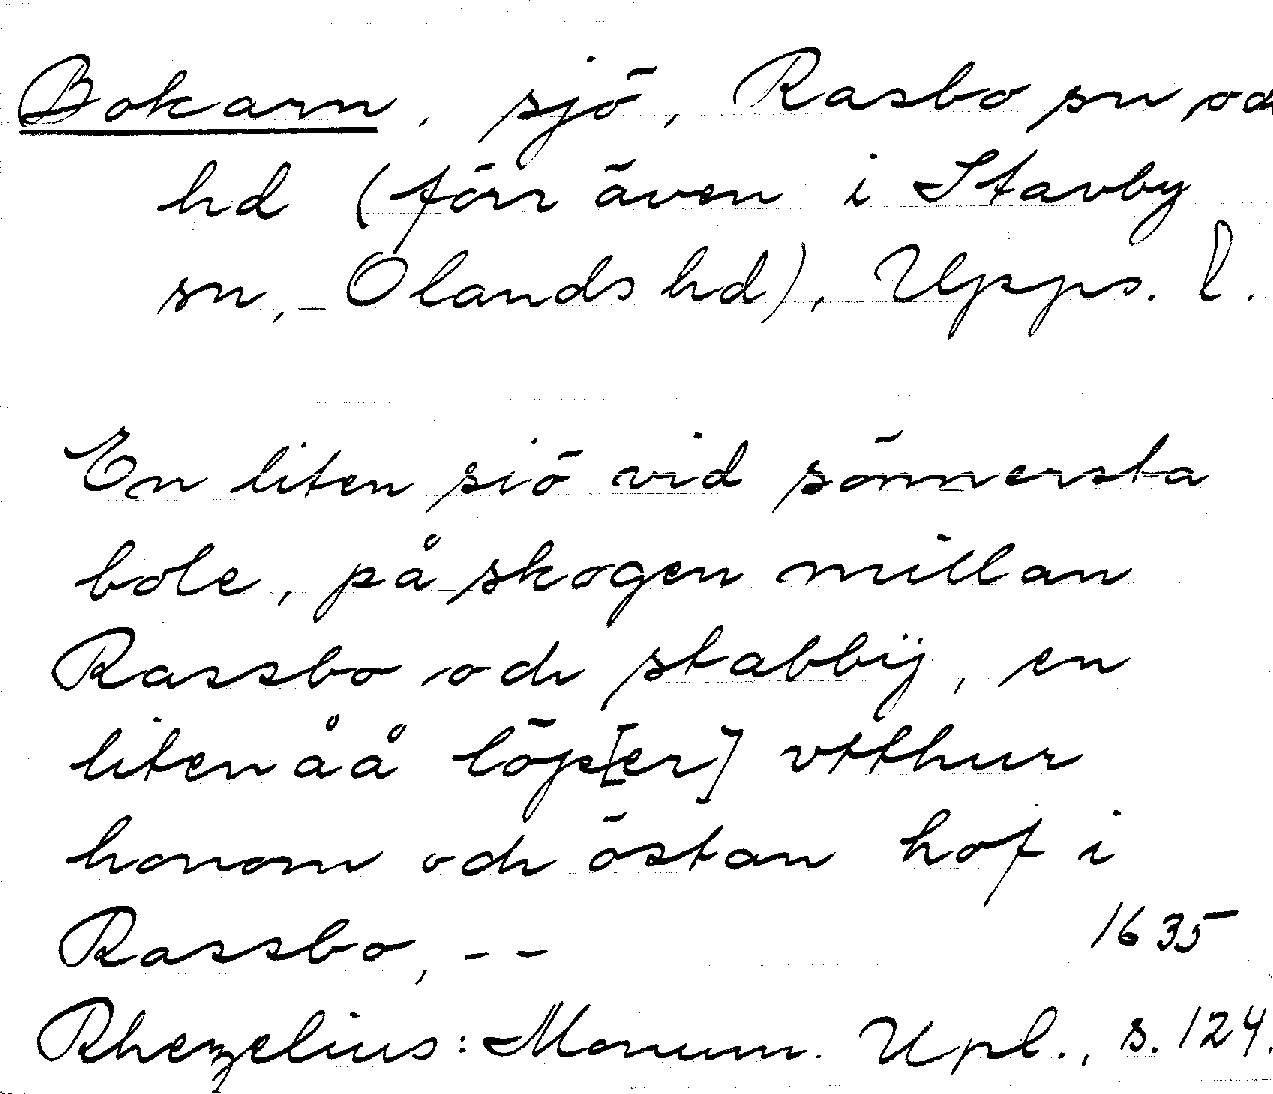 Bokarn, sjö, Rasbo sn och
hd (förr även i Stavby
sn, Olands hd), Upps. l.
En liten siö vid sönnersta
bole, på skogen millan
Rassbo och stabbÿ, en
liten åå löp[er] vtthur
honom och östan hof i
Rassbo, - - 1635
Rhezelius: Monum. Upl., s. 124.